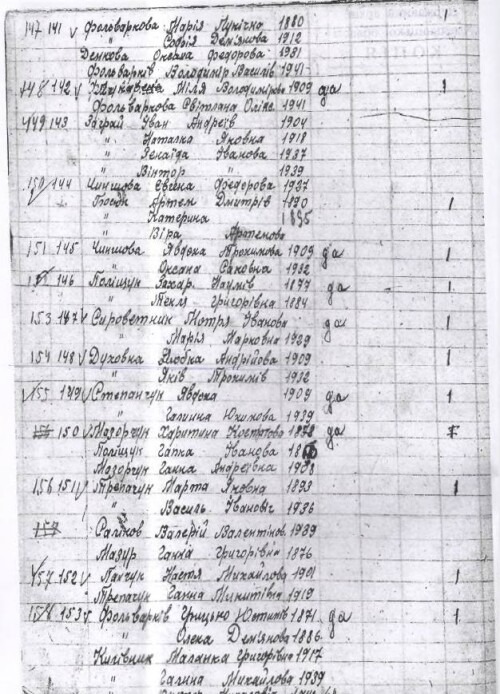 147 141 v Фольваркова Марія Лукічно 1880 1
" Софія Дем'янова 1912
Оксана Федорова 1931
Фольварків Володимір Василів 1941
148 142 v Юлія Володимірова 1909 да 1
Фольваркова Світлана Олікс. 1941
149 143 Заграй Іван Андреїв 1904
" Наталка Яковна 1918
" Зенаїда Іванова 1937
" Віктор " 1939
150 144 Чиншова Евгена Федорова 1937
Артем Дмитрів 1890 1
" Катерина 1895
" Віра Артемова
151 145 Чиншова Явдоха Трохимова 1909 да 1
" Оксана Саковна 1932
146 Поліщук Захар Наумів 1877 да 1
" Текля Григорівна 1884
153 147 v Сироветник Мотря Іванова да 1
" Марія Марковна 1939
154 148 v Духовка Андрійова 1909 1
" Яків Трохимів 1932
155 149 v Степанчук Явдоха 1909 да 1
" Галина Юхимова 1939
150 v Мазорчук Харитина 1878 да
Поліщук Гапка Іванова
Мазорчук Ганна Андреївна 1908
156 151 v Трепачук Марта Яковна 1893 1
" Василь Іванович 1936
Валерій Валентінов 1939
Мазур Ганна Григорівна 1876
157 152 v Панчук Настя Михайлова 1901 1
Трепачук Ганна Микитівна 1919
158 153 v Фольварків Грицько Юстимів 1871 да 1
" Олена Дем'янова 1886
Київник Маланка Григорівна 1917
" Галина Михайлова 1939